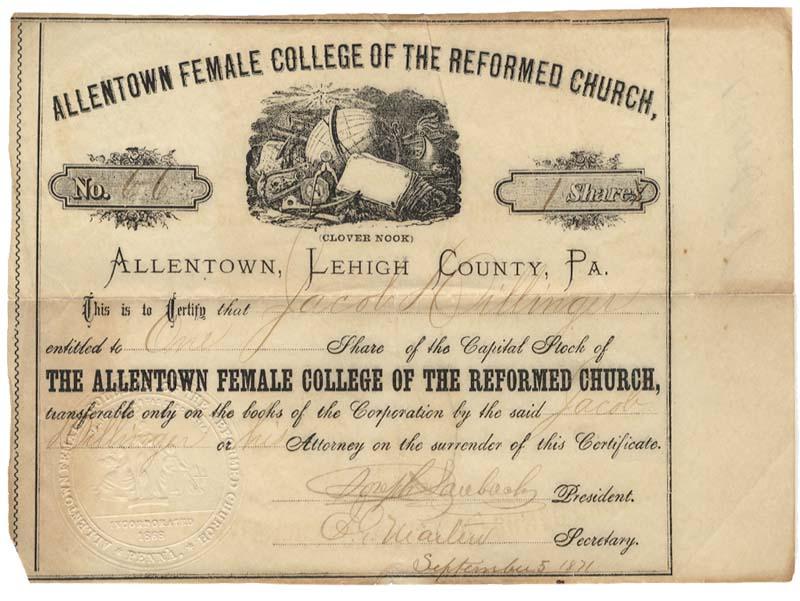 ALLENTOWN FEMALE COLLEGE OF THE REFORMED CHURCH,
No. 66
1 Shares
(CLOVER NOOK)
ALLENTOWN, LEHIGH COUNTY, PA.
This is to Certify that Jacob Dillinger
entitled to One Share of the Capital Stock of
THE ALLENTOWN FEMALE COLLEGE OF THE REFORMED CHURCH,
transferable only on the books of the Corporation by the said Jacob
Dillinger or his Attorney on the surrender of this Certificate.
Joseph Saubach President.
Secretary.
September 5 1871
ALLENTOWN FEMALE COLLEGE OF THE REFORMED CHURCH
INCORPORATED
1868
PENNA.